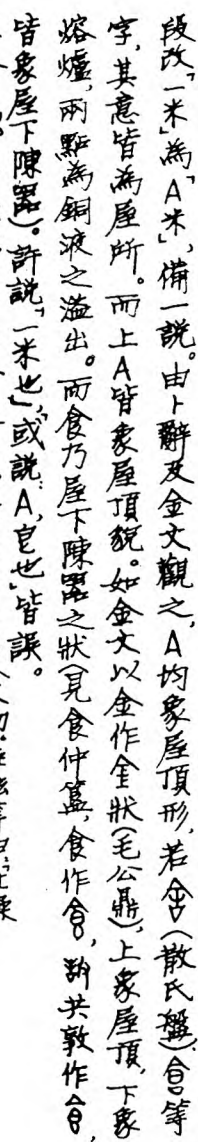 段改「一米」為「亼米」，備一說。由卜辭及金文觀之，亼均象屋頂形，若舍（散氏盤）、倉等
字，其意皆為屋所。而上亼皆象屋頂貌。如金文以金作全狀（毛公鼎），上象屋頂，下象
熔爐，兩點為銅液之溢出。而食乃屋下陳器之狀（見食仲簋，食作食，共敦作食，
皆象屋下陳器）。許說「一米也」，或說「亼，皀也」皆誤。